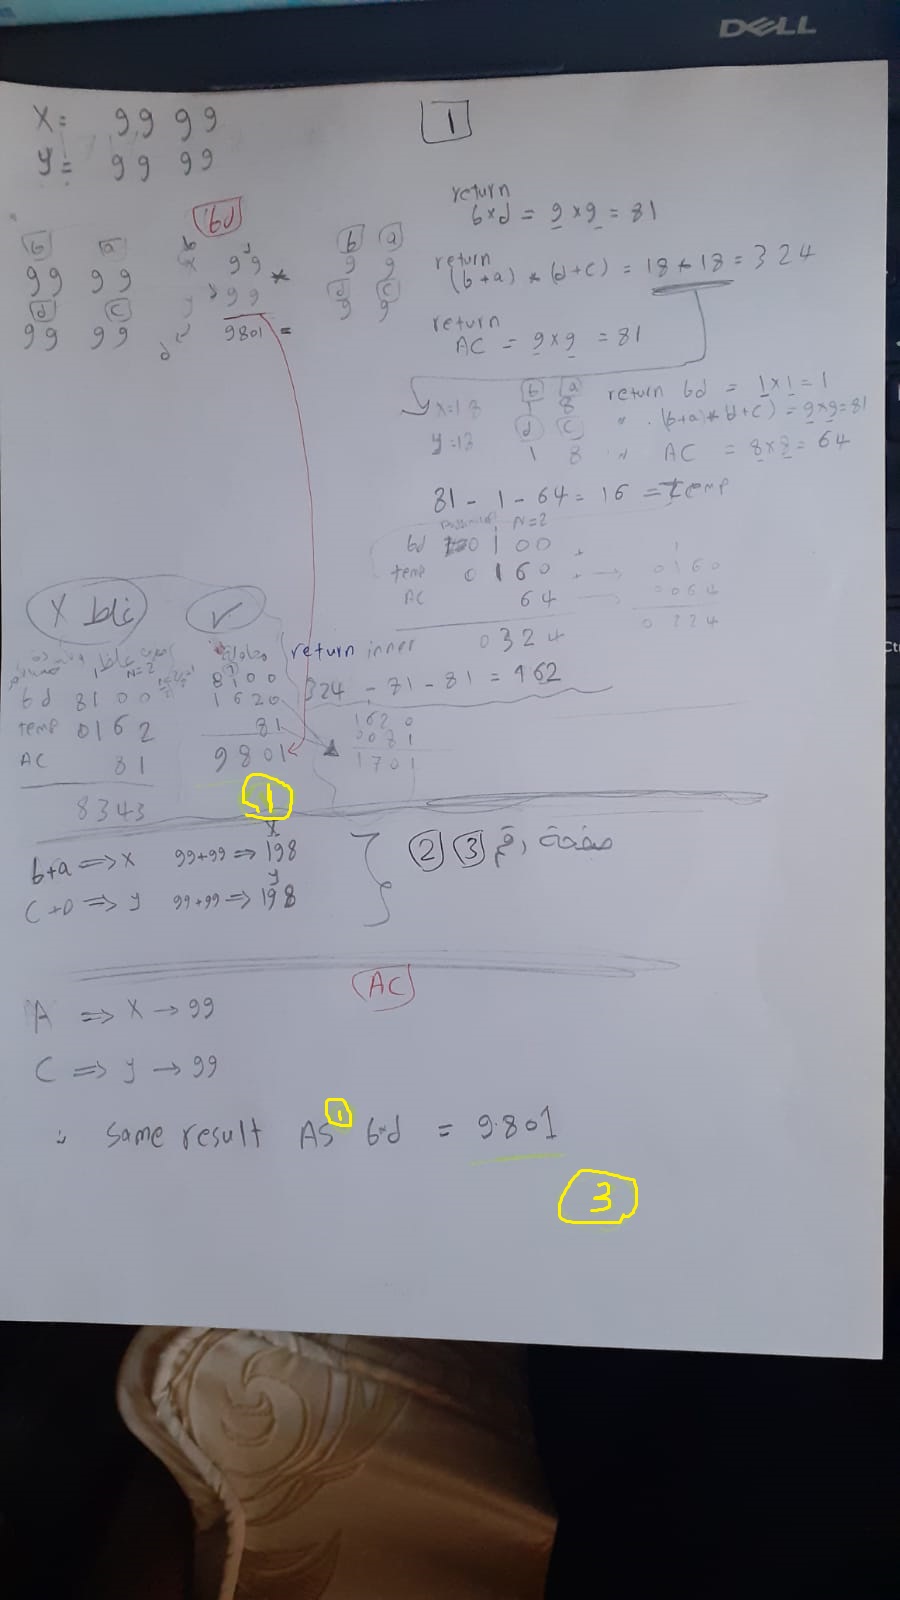 DELL
X = 99 99
y = 99 99
1
bd
b a
99 99
d c
99 99
99 *
99
9801 =
b a
9 9
d c
9 9
return
b×d = 9 × 9 = 81
return
(b+a) * (d+c) = 18 * 18 = 324
return
AC = 9×9 = 81
b a
x=18 1 8
d c
y=18 1 8
return bd = 1×1 = 1
" (b+a)*(d+c) = 9×9=81
" AC = 8×8= 64
81 - 1 - 64 = 16 = temp
N=2
bd 0100
temp 0160
AC 64
0324
1
0160
0064
0224
غلط X
✓
N=2
bd 8100
temp 0162
AC 81
8343
محاولة
8100
1620
81
9801
return inner
324 - 81 - 81 = 162
1620
0081
1701
1
b+a => x 99+99 => 198
x
C+D => y 99+99 => 198
y
2 3 صفحة رقم
AC
A => X → 99
C => y → 99
∴ same result AS 1 b*d = 9801
3